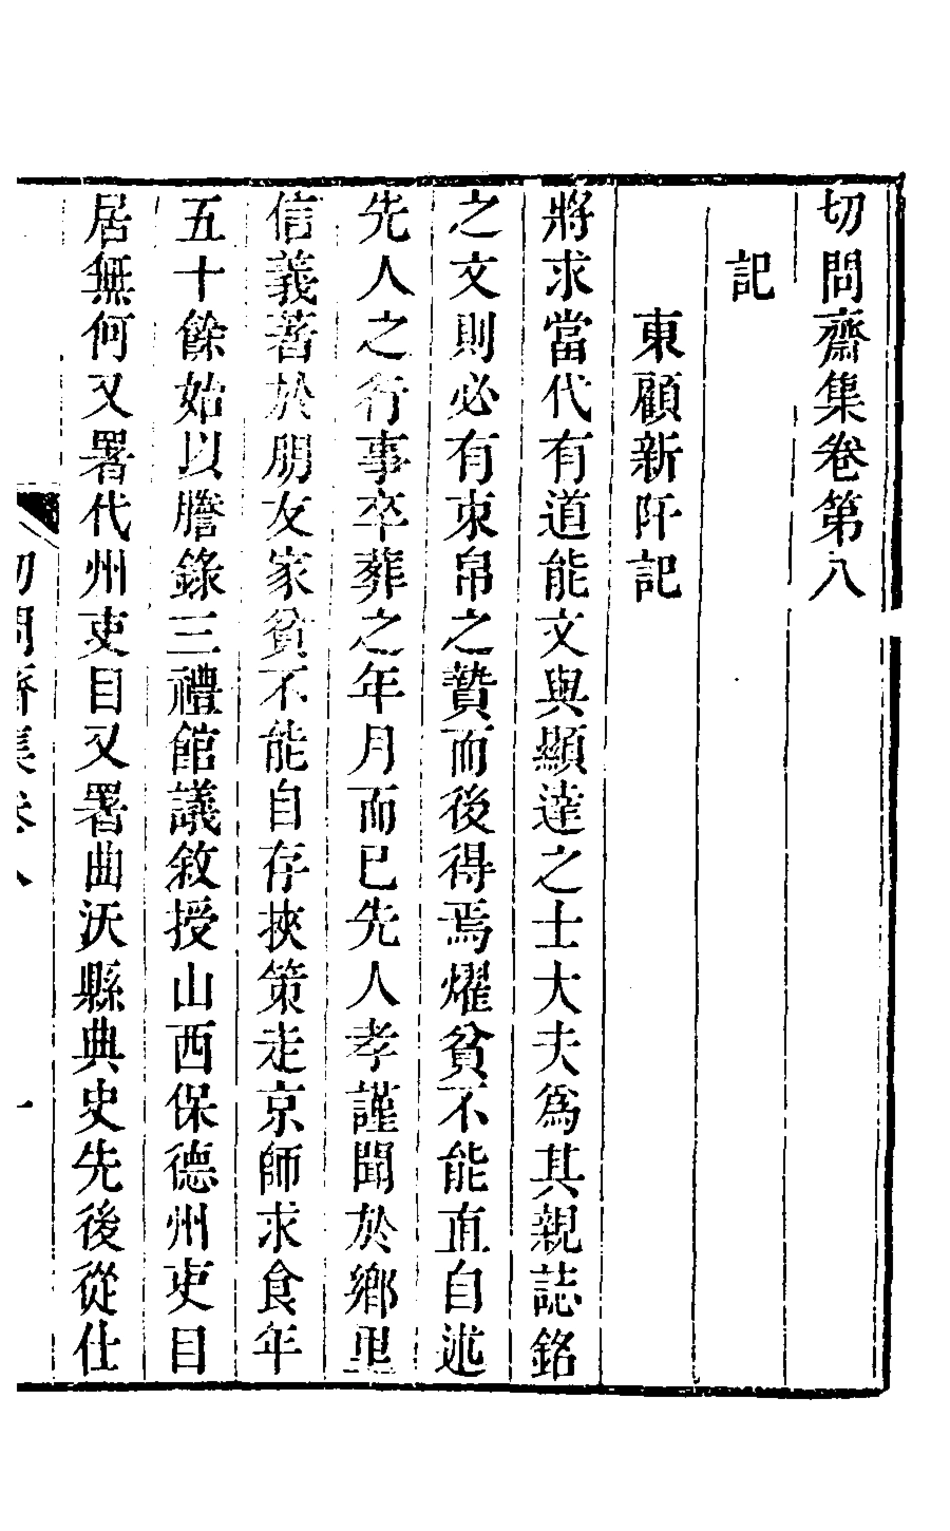 切問齋集卷第八
記
東顧新阡記
將求當代有道能文與顯達之士大夫為其親誌銘
之文則必有束帛之贄而後得焉燿貧不能直自述
先人之行事卒葬之年月而已先人孝謹聞於鄉里
信義著於朋友家貧不能自存挾策走京師求食年
五十餘始以謄錄三禮館議敘授山西保德州吏目
居無何又署代州吏目又署曲沃縣典史先後從仕
切問齋集卷八
一